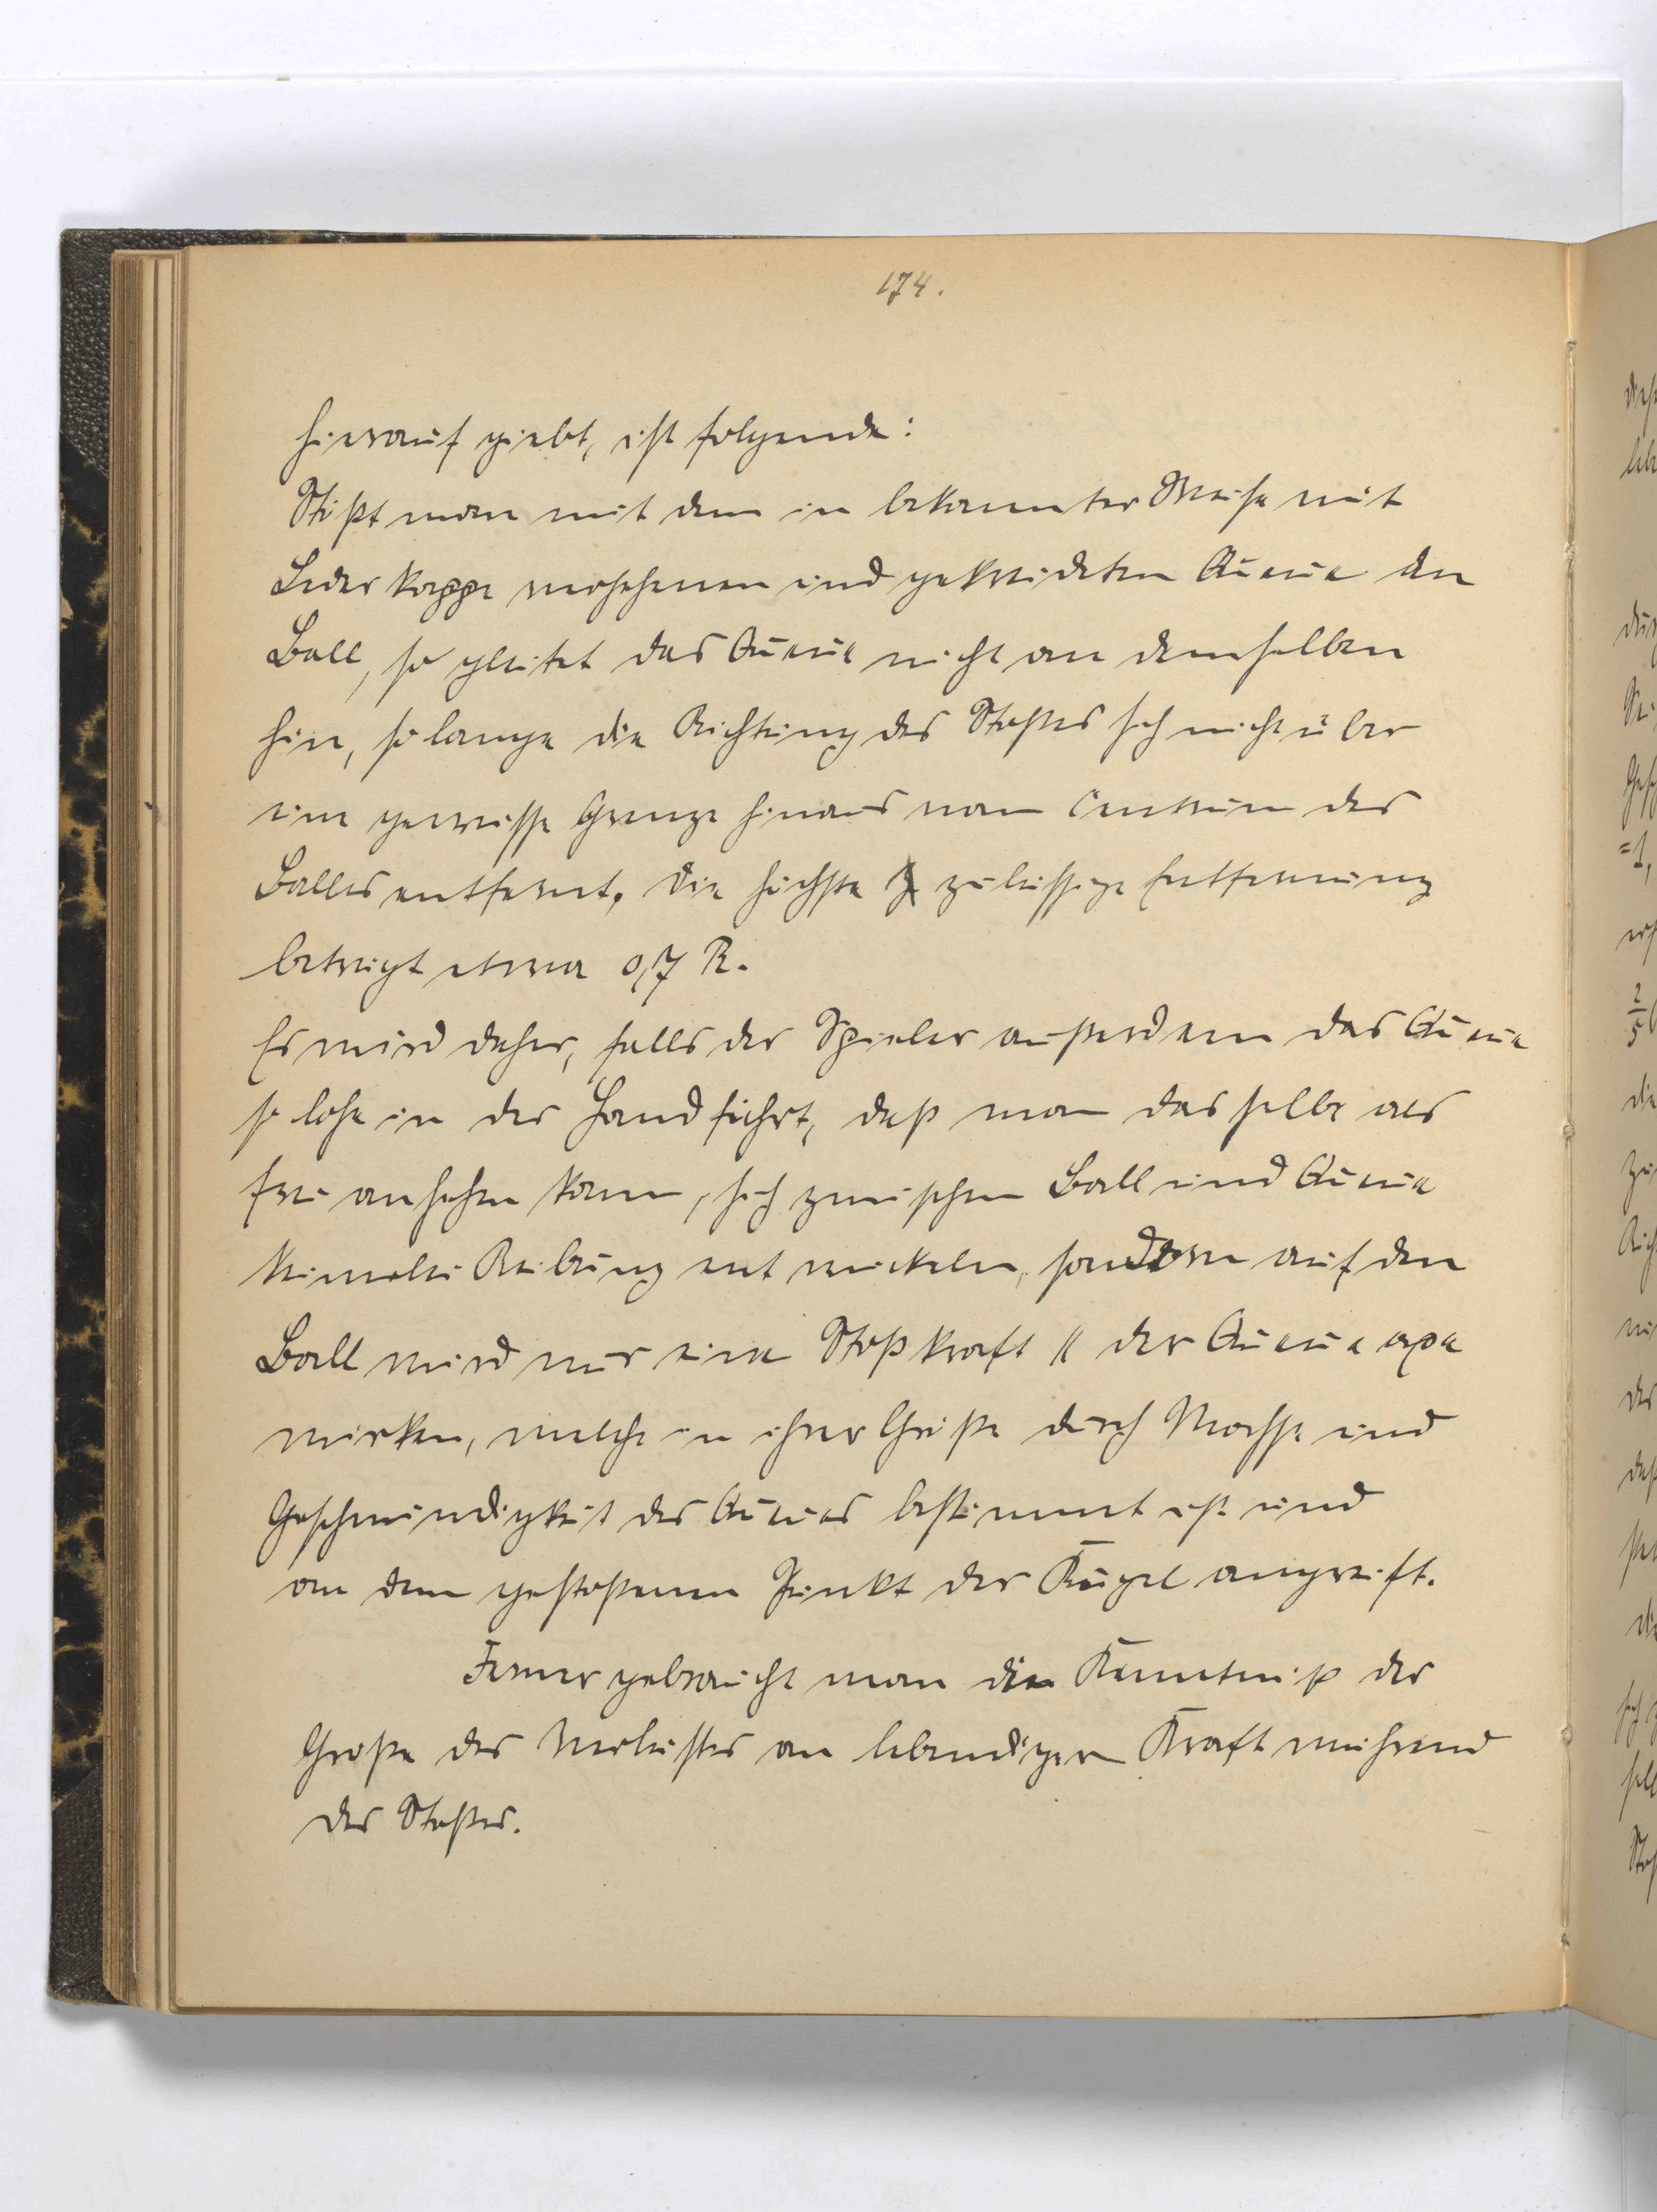 174.
hierauf giebt, ist folgende:
Stößt man mit dem in bekannter Weise mit
Lederkappe versehenen und gekreideten Queue den
Ball, so gleitet das Queue nicht an demselben
hin, so lange die Richtung des Stoßes sich nicht über
eine gewisse Grenze hinaus vom Centrum des
Balles entfernt. Die höchste zulässige Entfernung
beträgt etwa 0,7 R.
Es wird daher, falls der Spieler außerdem das Queue
so lose in der Hand führt, daß man dasselbe als
frei ansehen kann, sich zwischen Ball und Queue
keinerlei Reibung entwickeln, sondern auf den
Ball wird nur eine Stoßkraft || der Queueaxe
wirken, welche in ihrer Größe durch Masse und
Geschwindigkeit des Queues bestimmt ist und
an dem gestoßenen Punkt der Kugel angreift.
Ferner gebraucht man die Kenntniß der
Größe des Verlustes an lebendiger Kraft während
des Stoßes.